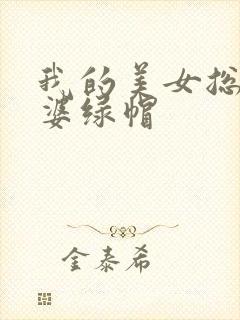 我的美女总
婆绿帽
金泰希